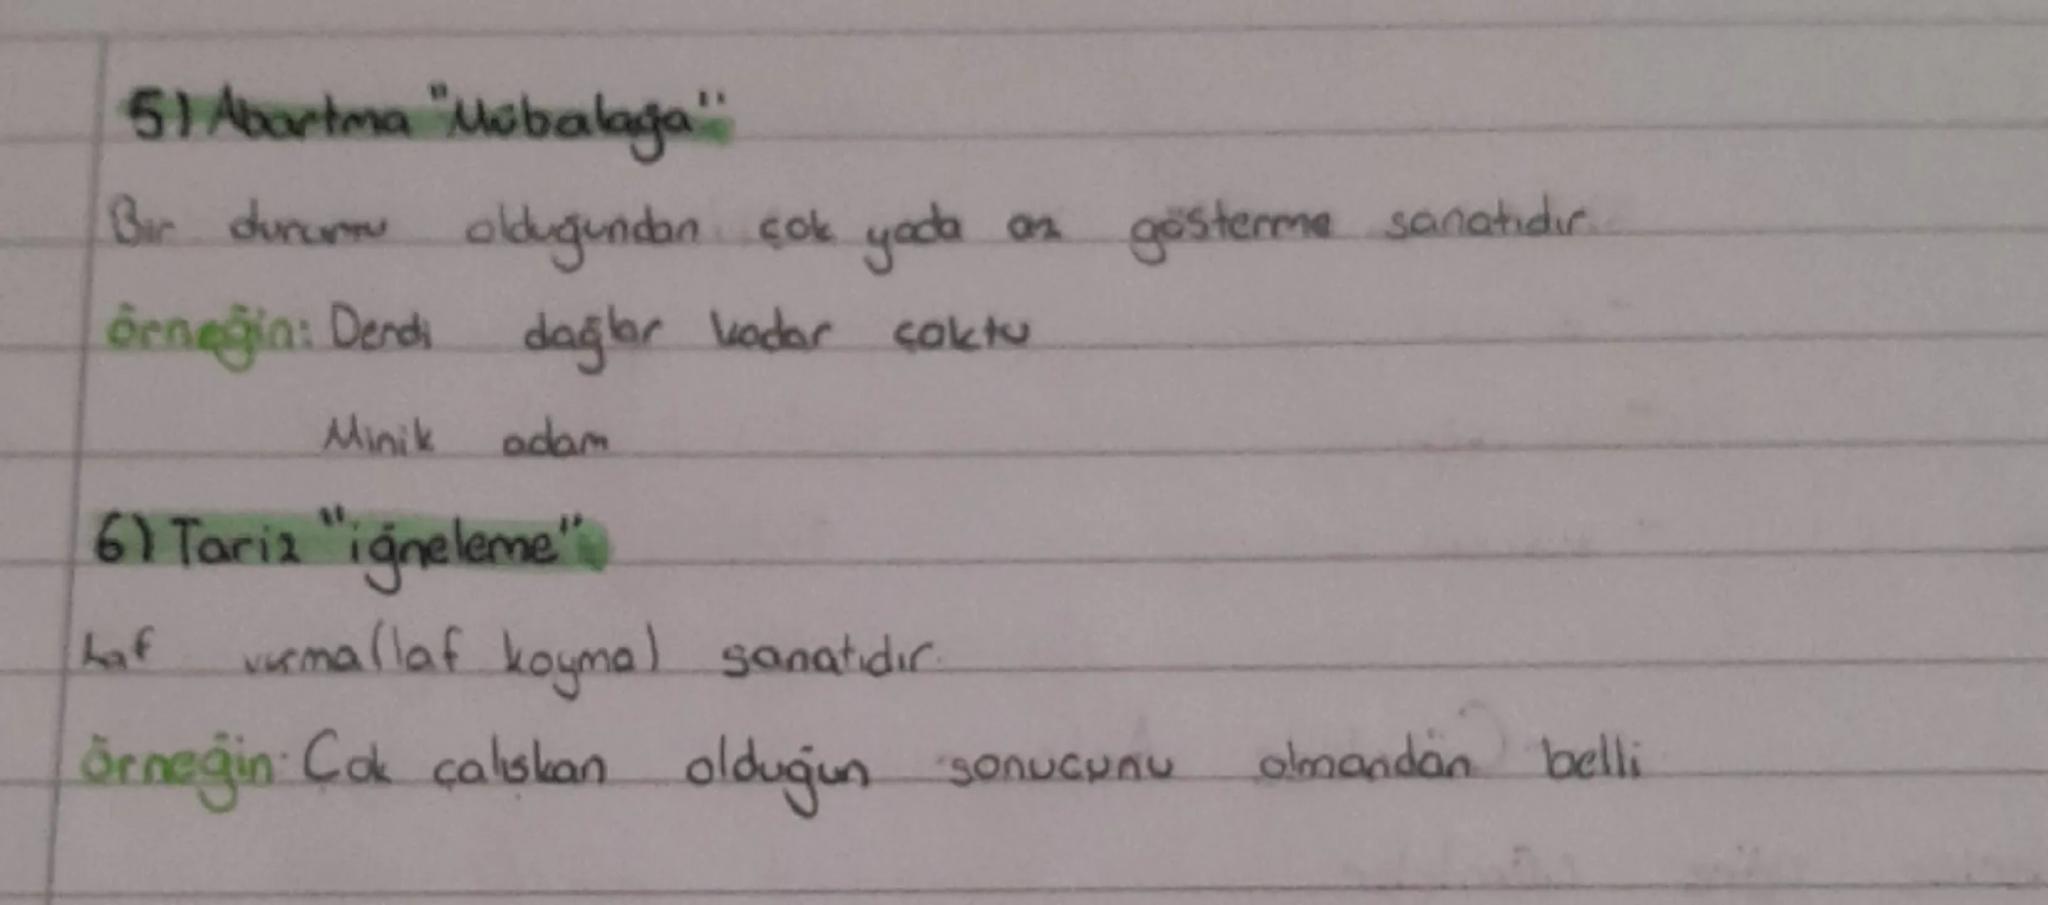 5) Abartma "Mübalağa"
Bir durumu olduğundan çok yada az gösterme sanatıdır.
örneğin: Derdi dağlar kadar çoktu
Minik adam
6) Tariz "iğneleme"
Laf vurma (laf koyma) sanatıdır.
örneğin: Çok çalışkan olduğun sonucunu almandan belli